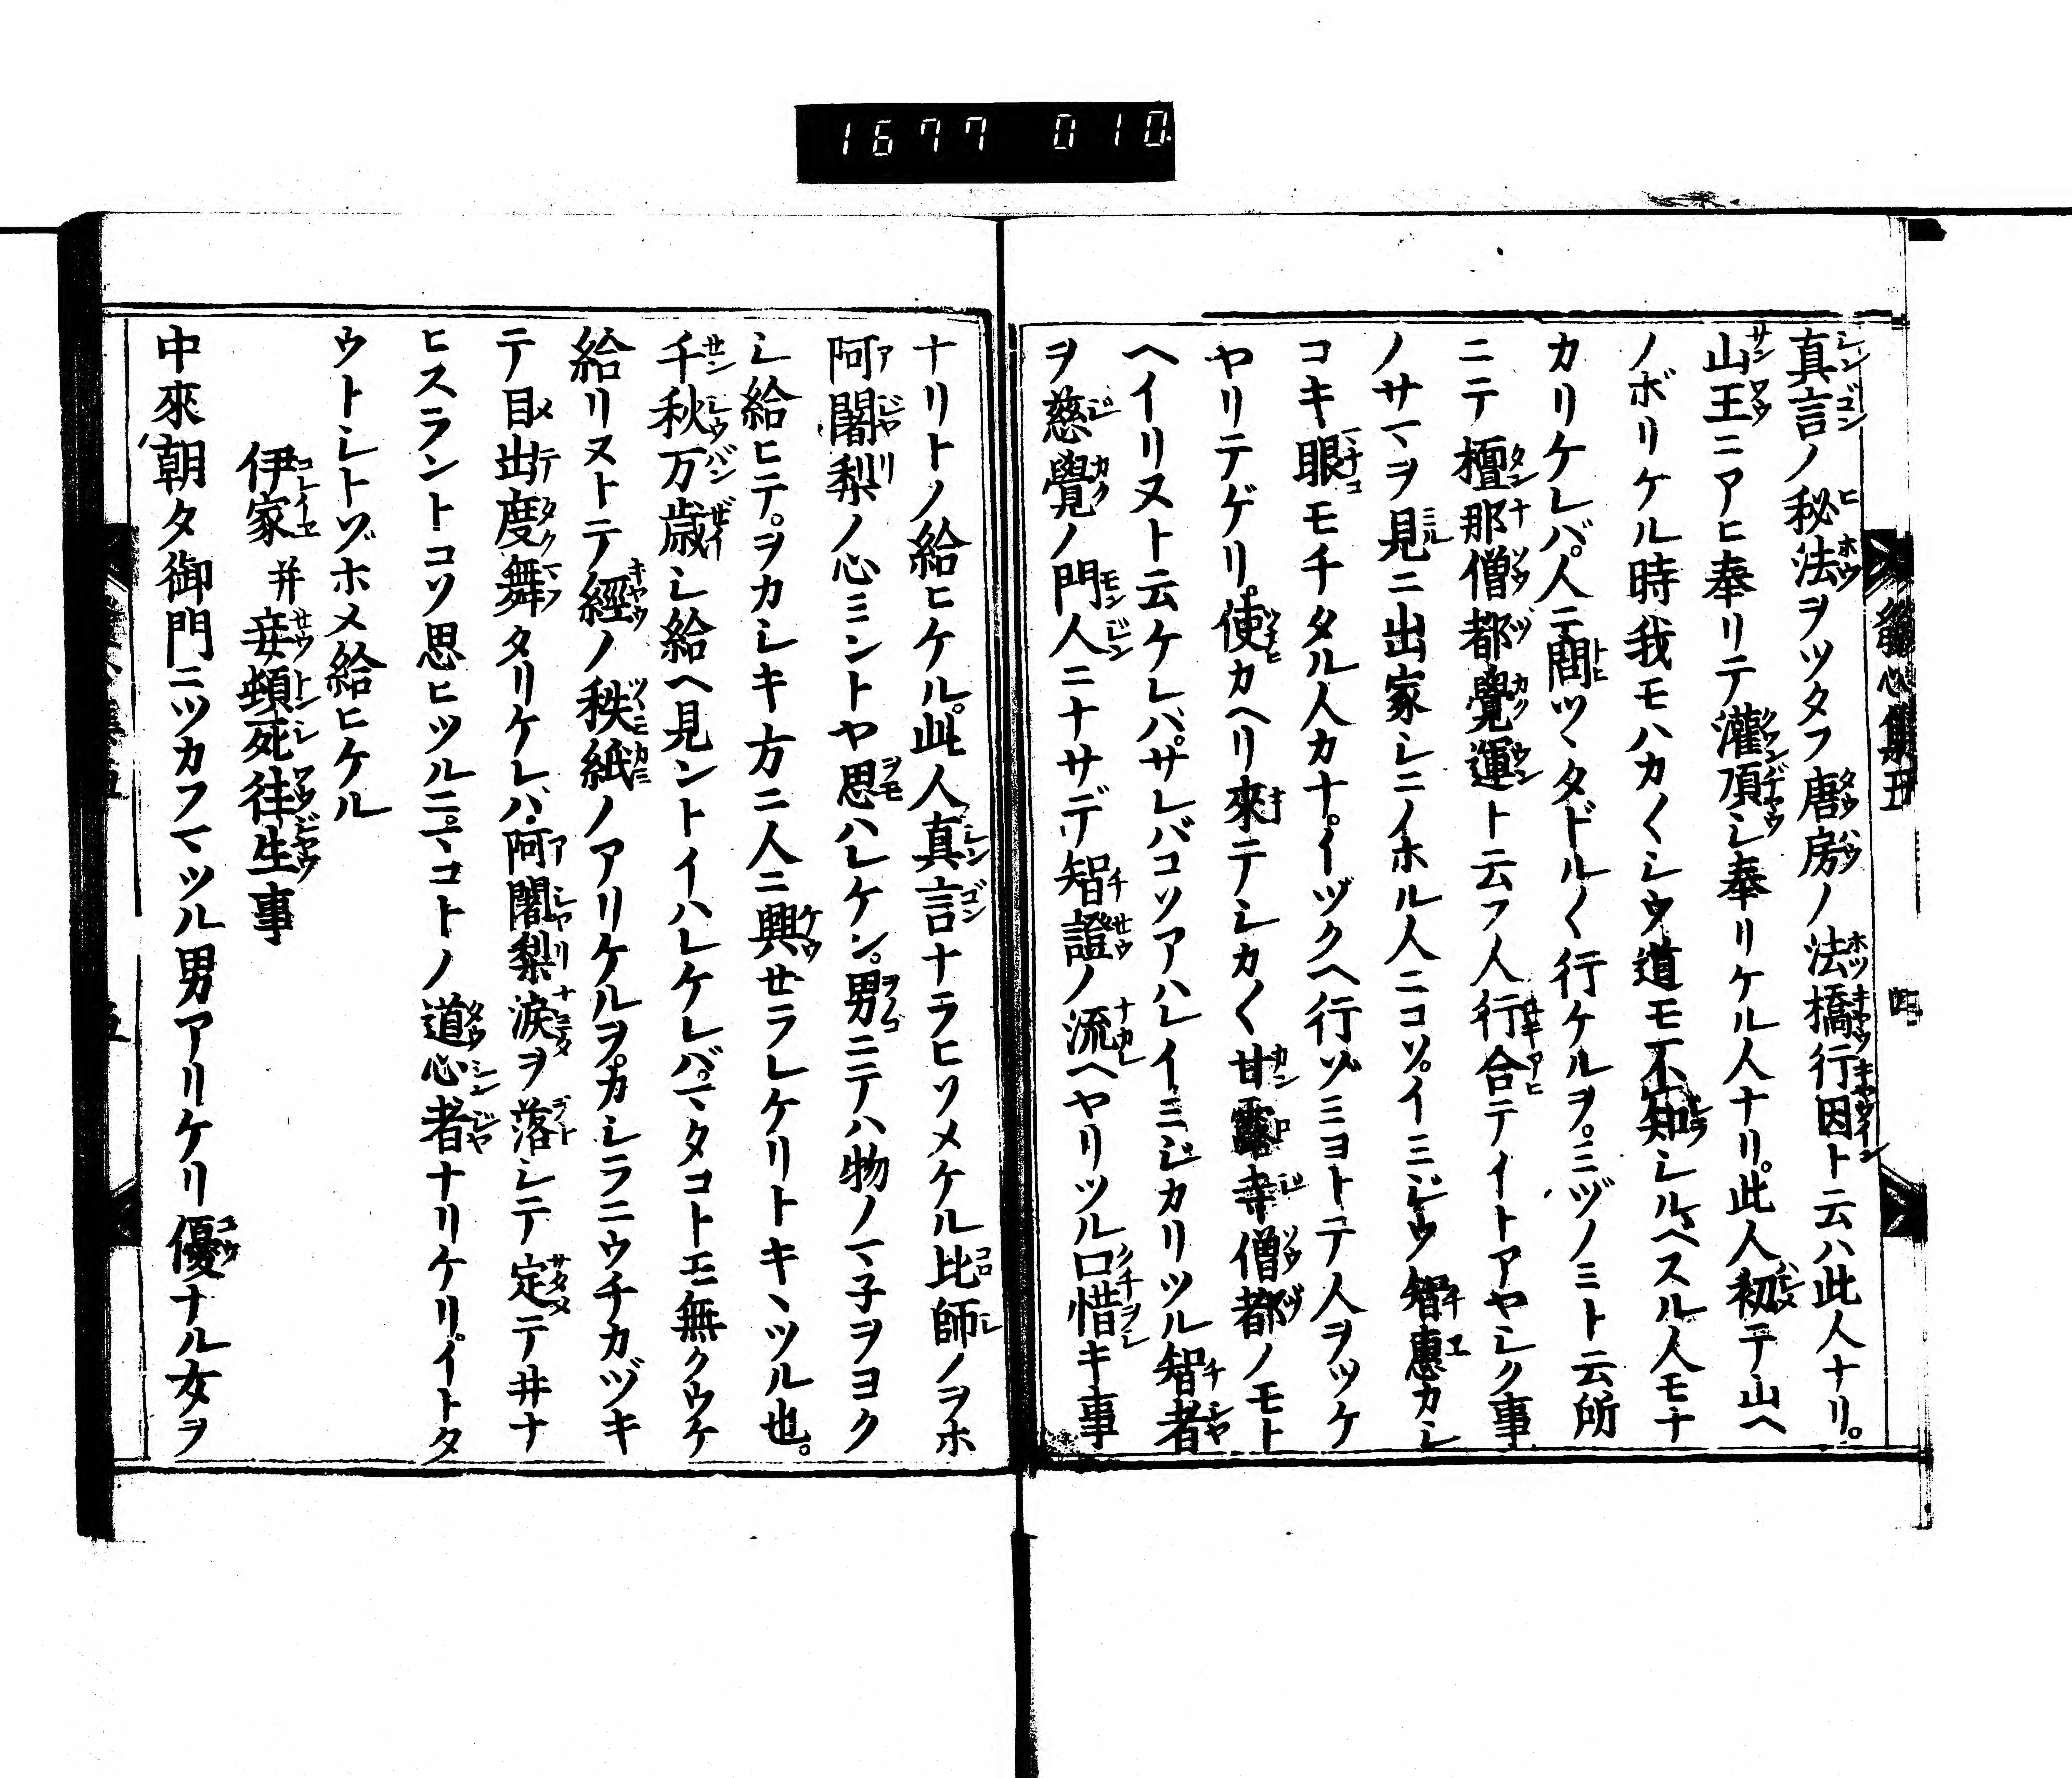 1677 010
真言ノ秘法ヲツタフ唐房ノ法橋行因ト云ハ此人ナリ。
山王ニアヒ奉リテ灌頂シ奉リケル人ナリ。此人初テ山ヘ
ノボリケル時我モハカ〱シウ道モ不知シルベスル人モナ
カリケレバ。人ニ問ツヽタドル〱行ケルヲ。ミヅノミト云所
ニテ檀那僧都覺運ト云フ人行合テイトアヤシク事
ノサマヲ見ニ出家シニノホル人ニコソ。イミジウ智惠カシ
コキ眼モチタル人カナ。イヅクヘ行ゾミヨトテ人ヲツケ
ヤリテゲリ。使カヘリ來テシカ〱甘露寺僧都ノモト
ヘイリヌト云ケレバ。サレバコソアハレイミジカリツル智者
ヲ慈覺ノ門人ニナサデ智證ノ流ヘヤリツル口惜キ事
ナリトノ給ヒケル。此人真言ナラヒソメケル比師ノヲホ
阿闍梨ノ心ミントヤ思ハレケン。男ニテハ物ノマ子ヲヨク
シ給ヒテ。ヲカシキ方ニ人ニ興セラレケリトキヽツル也。
千秋万歳シ給ヘ見ントイハレケレバ。マタコトモ無クウケ
給リヌトテ經ノ秩紙ノアリケルヲ。カシラニウチカヅキ
テ目出度舞タリケレバ。阿闍梨涙ヲ落シテ定テ井ナ
ヒスラントコソ思ヒツルニ。マコトノ道心者ナリケリ。イトタ
ウトシトゾホメ給ヒケル
伊家并妾頓死往生事
中來朝夕御門ニツカフマツル男アリケリ優ナル女ヲ